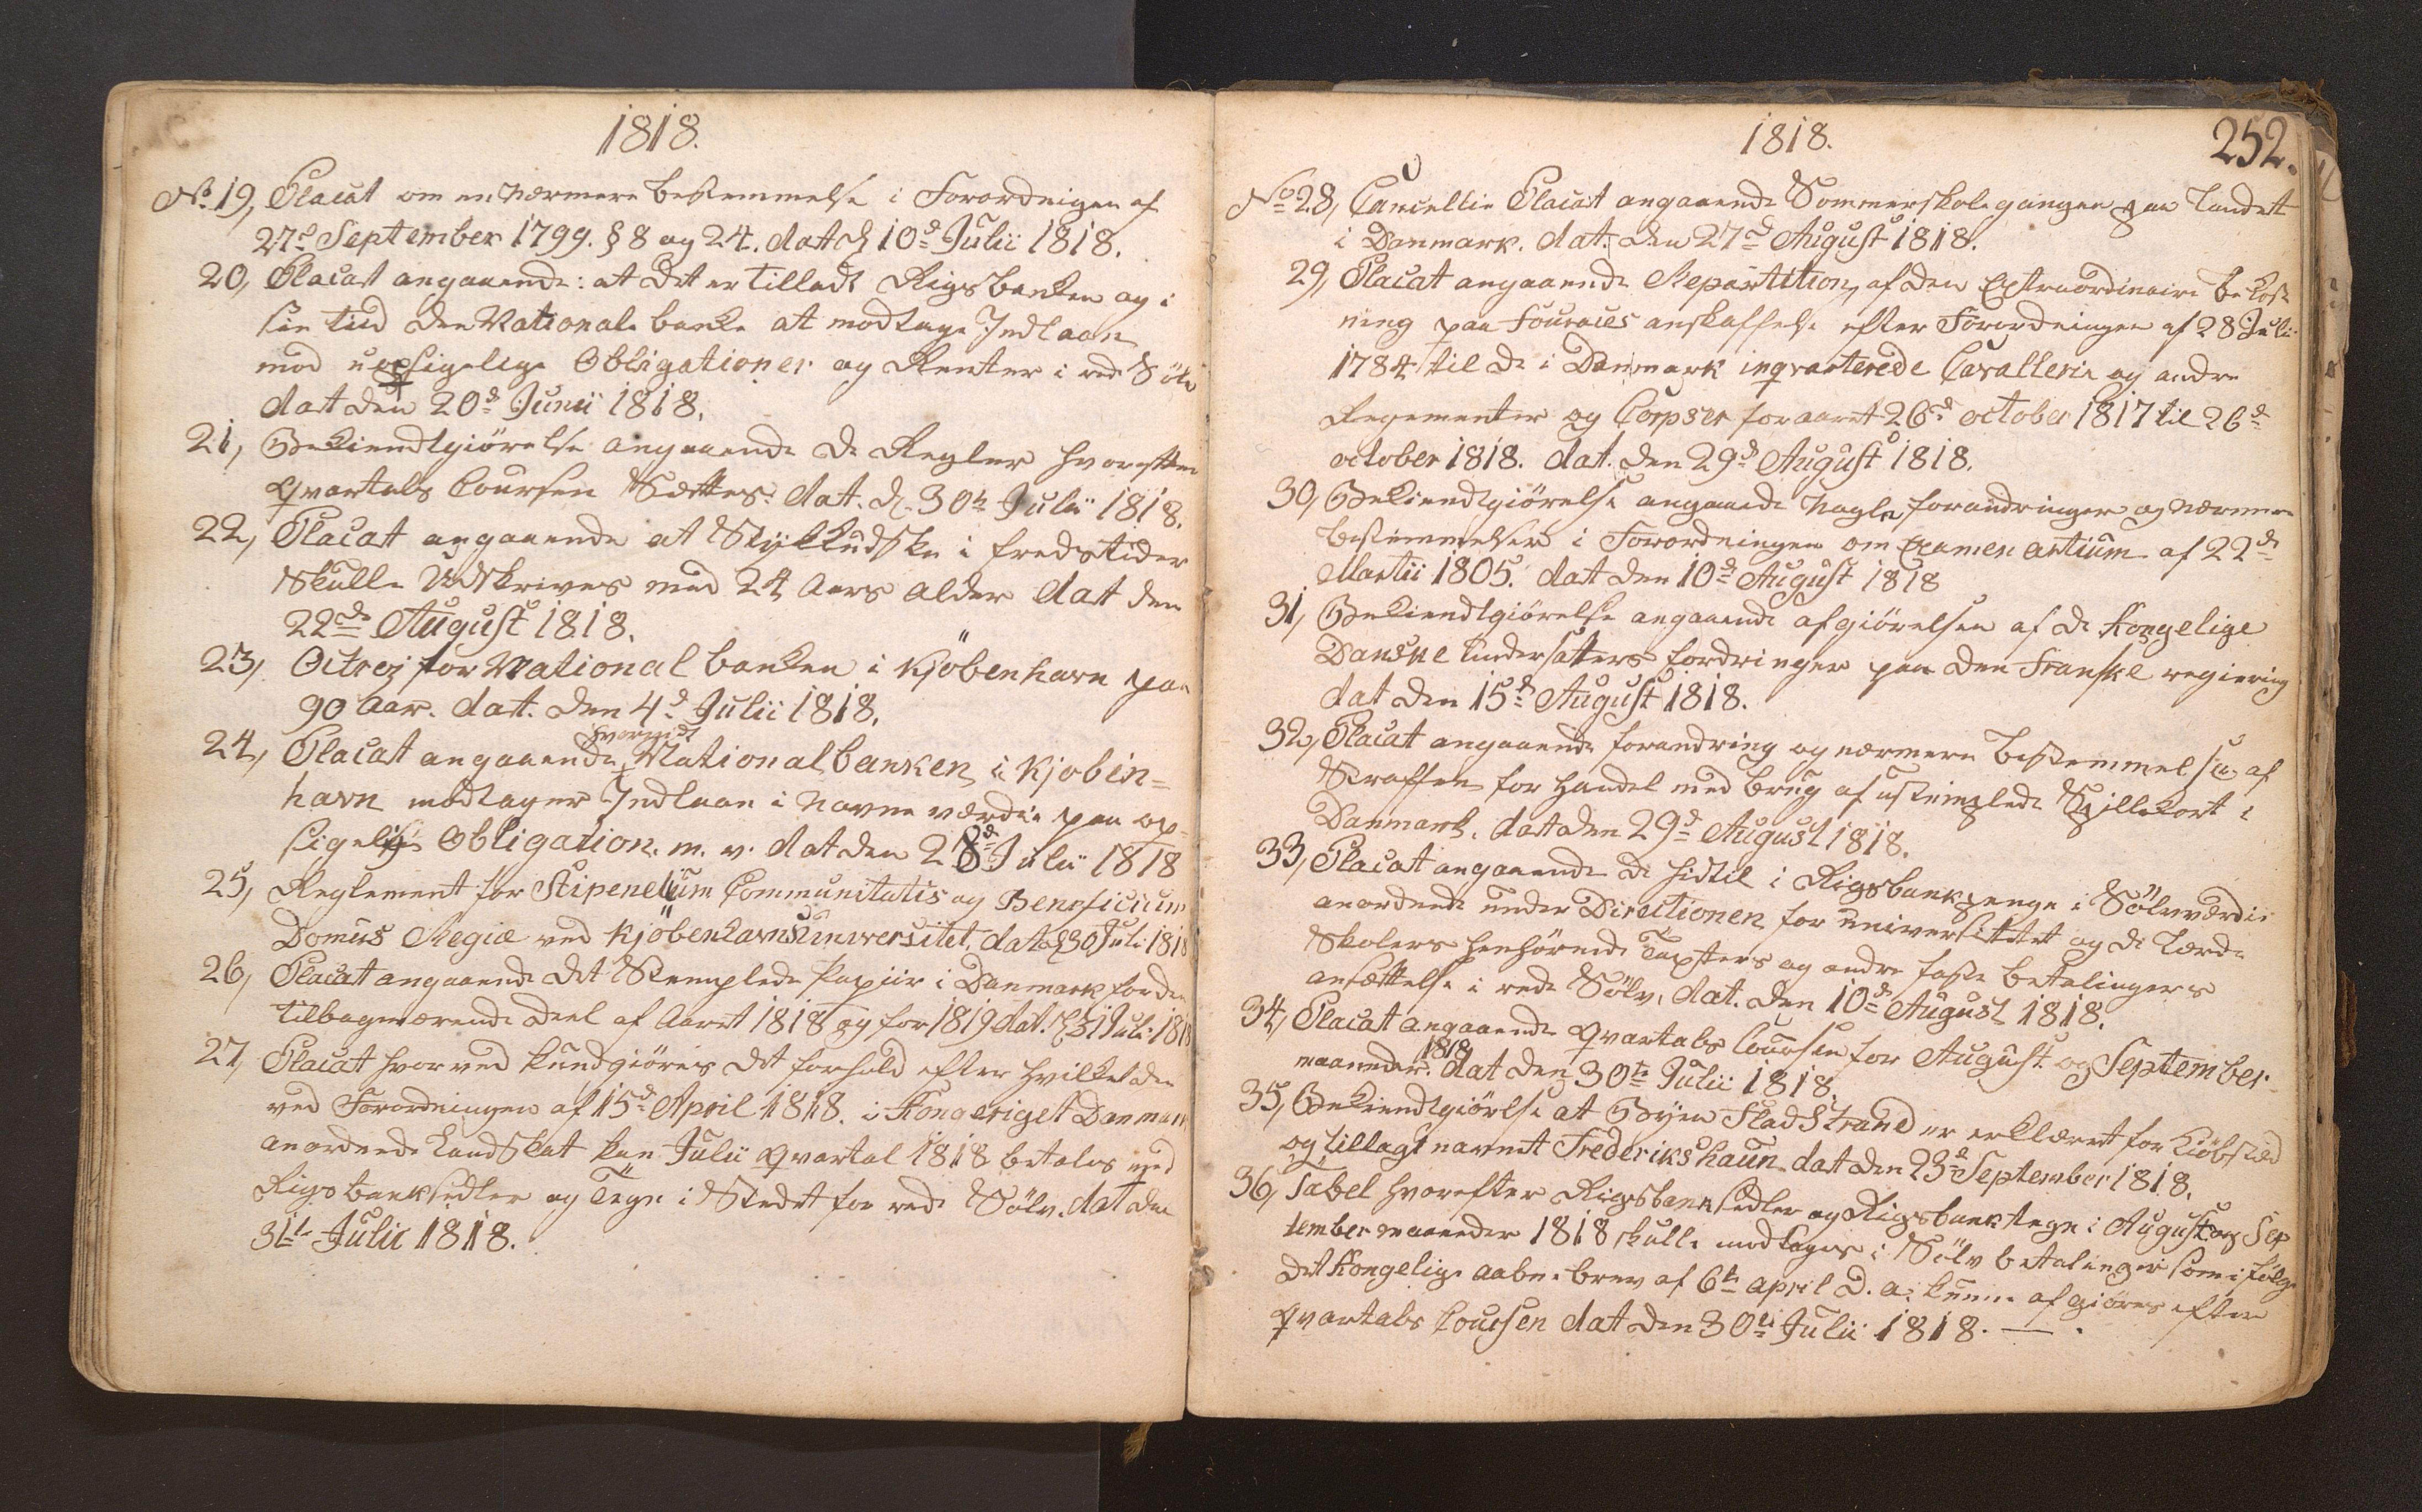 1818.
No. 19, Placat om en nærmere bestemmelse i Forordnigen af
27d September 1799. § 8 og 24. dat d 10d Julii 1818.
20, Placat angaaende: at det er tilladt Rigsbanken og i
sin tiid den Nationale banke at modtage Indlaan
mod uopsigelige Obligationer og Renter i rede Sölv
dat den 20d Junii 1818.
21, Bekiendtgiörelse angaaende de Regler hvorefter
Qvartals Coursen Sættes. dat. d. 30te Julii 1818.
22, Placat angaaende at Stÿkkudske i fredstider
Skulle Udskrives med 24 Aars alder dat den
22de August 1818.
23, Octroj for National banken i Kjöbenhavn paa
90 Aar. dat. den 4d Julii 1818.
hvorvidt
24, Placat angaaende Nationalbanken i Kjobin=
havn modtager Indlaan i Navne værdie paa op=
sigelige Obligation. m. v. dat den 28d Julii 1818
25, Reglement for Stipendium Communitatis og Beneficium
Domus Regiæ ved Kjöbenhavns Universitet. dat d 30 Juli 1818
26, Placat angaaende det Stemplede Papiir i Danmark for den
tilbageværende deel af Aaret 1818 og for 1819 dat. d 31 Juli 1818
27, Placat hvorved kundgiöres det forhold efter hvilket den
ved Forordningen af 15d April 1818. i Kongeriget Danmark
anordnede Landskat kan Julii Qvartal 1818 betales med
Rigsbanksedler og Tegn i Stedet for rede Sölv. dat den
31te Julii 1818.
1818.
252.
No 28, Cancellie Placat angaaende Sommerskolegangen paa Landet
i Danmark. dat: den 27d August 1818.
29, Placat angaaende Repartition, af den Extraordinaire bekost
ning paa Fourages anskaffelse efter Forordningen af 28 Juli
1784 til de i Danmark inqvarterede Cavallerie og andre
Regementer og Corpser for aaret 26d october 1817 til 26d
october 1818. dat. den 29d August 1818.
30, Bekiendtgiörelse angaaende nogle forandringer og nærmere
bestemmelser i Forordningen om Examen artium af 22de
Martii 1805. dat den 10d August 1818
31, Bekiendtgiörelse angaaende afgiörelsen af de Kongelige
Danske Undersatters fordringer paa den Franske regiering
dat den 15d August 1818.
32, Placat angaaende forandring og nærmere bestemmelse, af
Straffen for handel med brug af ustemplede Spillekort i
Danmark. dat den 29d August 1818.
33, Placat angaaende de hidtil i Rigsbankpenge i Sölvværdie
anordnede under Directionen for universitetet og de lærde
Skolers henhörende Taxters og andre faste betalingers
ansættelse i rede Sölv. dat. den 10d August 1818.
34, Placat angaaende Qvartals Coursen for August og September
maaneder. 1818 dat den 30te Julii 1818.
35, Bekiendtgiörelse at Bÿen FladStrand er erklæret for Kiöbsted
og tillagt navnet Frederikshaun dat den 23d September 1818.
36, Tabel hvorefter Rigsbanksedler og Rigsbanktegn i August og Sep
tember maaneder 1818 skulle modtages i Sölv betalinger som ifölge
det Kongelige aabne brev af 6te april D. a. kunne afgiöres efter
Qvartals Coursen dat den 30te Julii 1818. — .